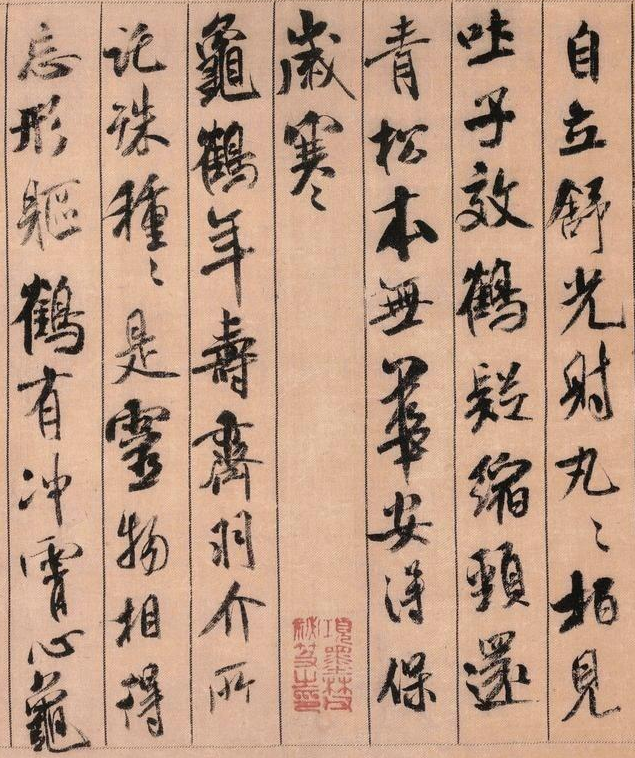 自立舒光射丸〻柏見
吐子效鶴疑縮頸還
青松本無華安得保
歲寒〻
項墨林父
秘笈之印
龜鶴年壽齊羽介所
託殊種〻是靈物相得
忘形軀鶴有冲霄心龜